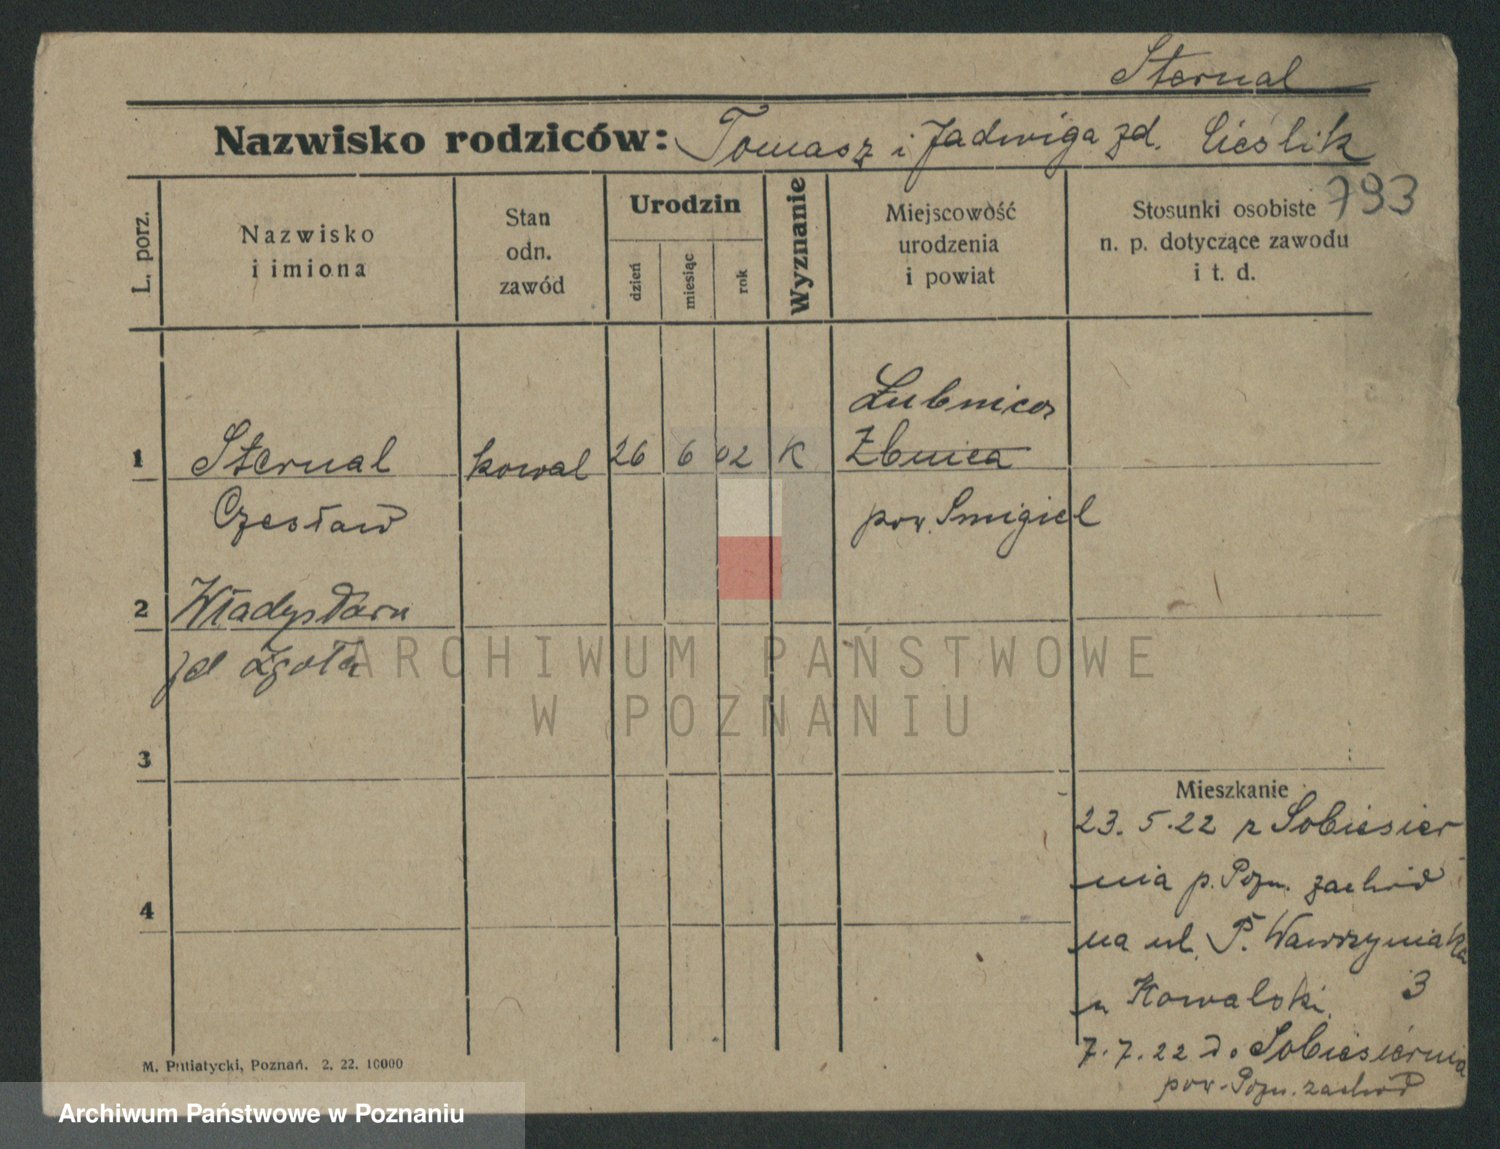 Sternal
Nazwisko rodziców: Tomasz i Jadwiga zd. Cieślik
793
L. porz.
Nazwisko
i imiona
Stan
odn.
zawód
Urodzin
dzień
miesiąc
rok
Wyznanie
Miejscowość
urodzenia
i powiat
Stosunki osobiste
n. p. dotyczące zawodu
i t. d.
Łubnica
1 Sternal kowal 26 6 02 K Zbnica
Czesław pow. Smigiel
2 Władysława
zd Zgoła
ARCHIWUM PAŃSTWOWE
W POZNANIU
3
Mieszkanie
23. 5. 22 z Sobiesier
nia p. Pozn. zachód
4
na ul. P. Wawrzyniaka
u Kowalski 3
7. 7. 22 do Sobiesiernia
pow. Pozn. zachód
M. Putiatycki, Poznań. 2. 22. 10000
Archiwum Państwowe w Poznaniu